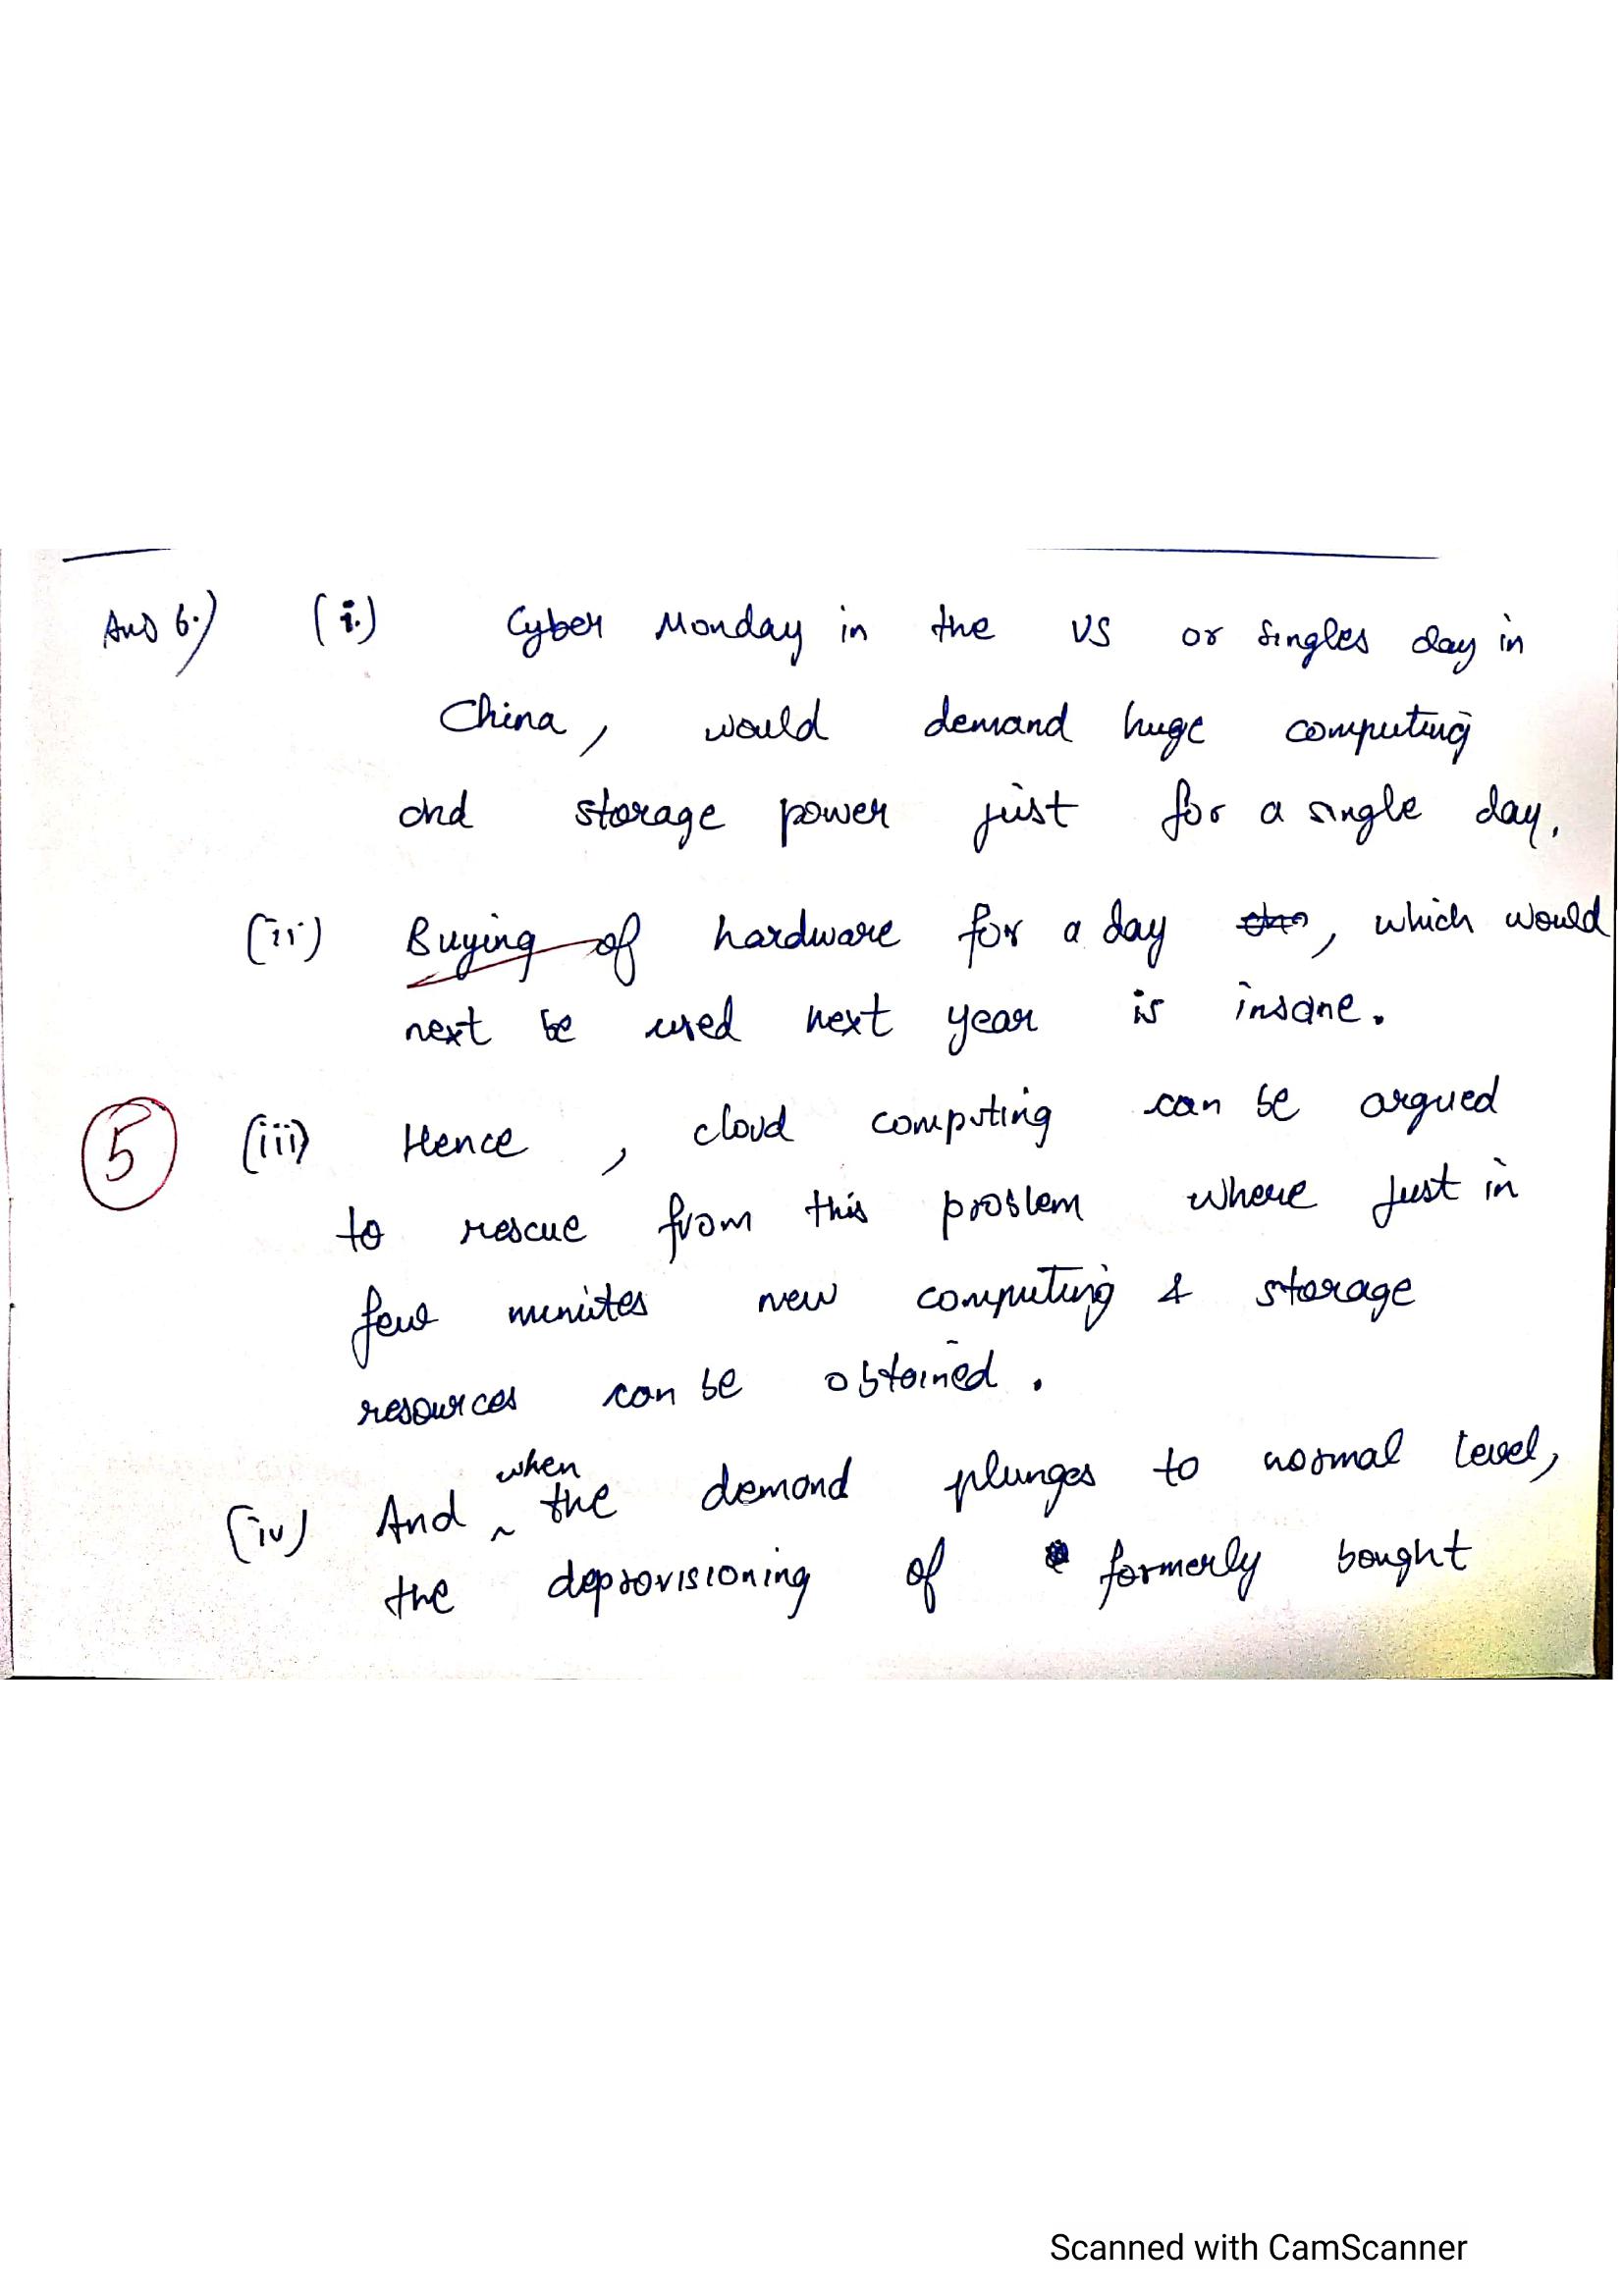 Ans 6.) (i.) Cyber Monday in the US or Singles day in
China, would demand huge computing
and storage power just for a single day.
(ii) Buying of hardware for a day , which would
next be used next year is insane.
5 (iii) Hence, cloud computing can be argued
to rescue from this problem where just in
few minutes new computing & storage
resources can be obtained.
(iv) And when the demand plunges to normal level,
the deprovisioning of formerly bought
Scanned with CamScanner